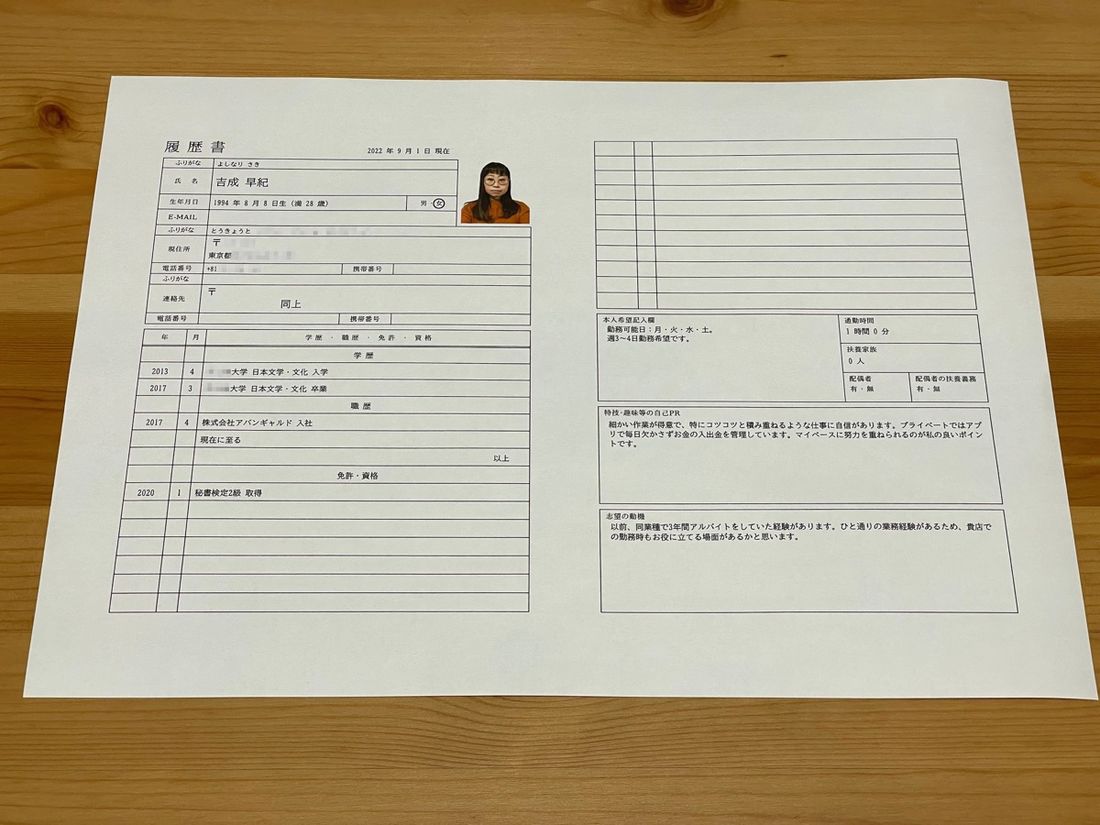 履歴書
2022 年 9 月 1 日 現在
ふりがな よしなり さき
氏 名 吉成 早紀
生年月日 1994 年 8 月 8 日生 (満 28 歳) 男・女
E-MAIL
ふりがな とうきょうと
現住所 〒
東京都
電話番号 +81 携帯番号
ふりがな
連絡先 〒
同上
電話番号 携帯番号
年 月 学歴・職歴・免許・資格
学歴
2013 4 大学 日本文学・文化 入学
2017 3 大学 日本文学・文化 卒業
職歴
2017 4 株式会社アバンギャルド 入社
現在に至る
以上
免許・資格
2020 1 秘書検定2級 取得
本人希望記入欄
勤務可能日：月・火・水・土。
週3~4日勤務希望です。
通勤時間
1 時間 0 分
扶養家族
0 人
配偶者
有・無
配偶者の扶養義務
有・無
特技・趣味等の自己PR
細かい作業が得意で、特にコツコツと積み重ねるような仕事に自信があります。プライベートではアプ
リで毎日欠かさずお金の入出金を管理しています。マイペースに努力を重ねられるのが私の良いポイン
トです。
志望の動機
以前、同業種で3年間アルバイトをしていた経験があります。ひと通りの業務経験があるため、貴店で
の勤務時もお役に立てる場面があるかと思います。